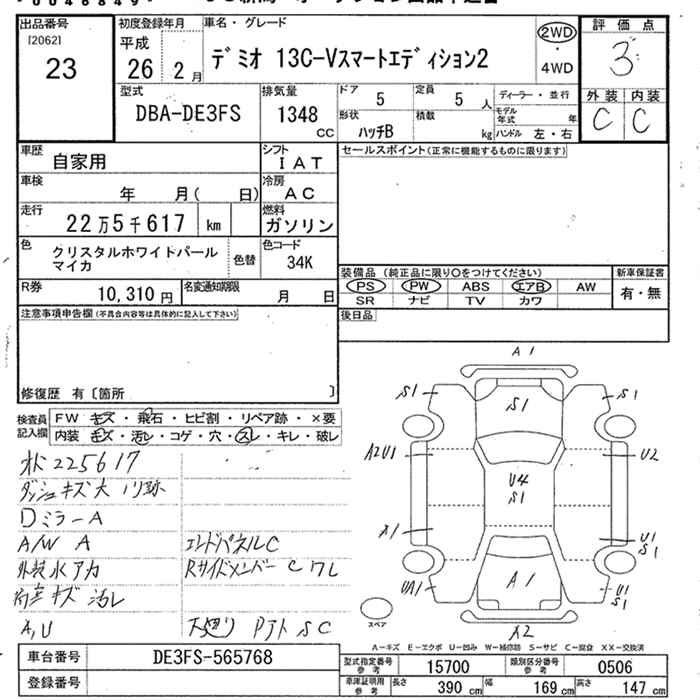 出品番号
[2062]
23
初度登録年月
平成
26 年 2 月
車名・グレード
デミオ 13C-Vスマートエディション2
2WD
・
4WD
評価点
3
外装 内装
C C
型式
DBA-DE3FS
排気量
1348
CC
ドア 5
定員 5 人
ディーラー・並行
形状
ハッチB
積載
kg
モデル年式 年
ハンドル 左・右
車歴
自家用
シフト
IAT
セールスポイント(正常に機能するものに限ります)
車検
年 月( 日)
冷房
AC
走行
22万5千617 km
燃料
ガソリン
色
クリスタルホワイトパール
マイカ
色替
色コード
34K
装備品(純正品に限り○をつけてください)
PS PW ABS エアB AW
SR ナビ TV カワ
新車保証書
有・無
R券
10,310 円
名変通知期限
月 日
後日品
注意事項申告欄(不具合内容等は具体的に記入して下さい)
修復歴 有〔箇所 〕
検査員
記入欄
FW キズ・飛石・ヒビ割・リペア跡・×要
内装 キズ・汚レ・コゲ・穴・スレ・キレ・破レ
225617
ダッシュキズ大 ノリ跡
Dミラー A
A/W A
外装水アカ
内装キズ 汚レ
A,U
エンドパネルC
Rサイドメンバー C ワレ
下廻り Pアト SC
A1
S1
S1
S1
A2U1
U4
S1
U2
X1
U1
S1
UA1
A1
U1
S1
X2
スペア
A-キズ E-エクボ U-凹み W-補修跡 S-サビ C-腐食 XX-交換済
車台番号
DE3FS-565768
登録番号
型式指定番号
参考
15700
類別区分番号
参考
0506
車庫証明用
参考
長さ 390 cm
幅 169 cm
高さ 147 cm